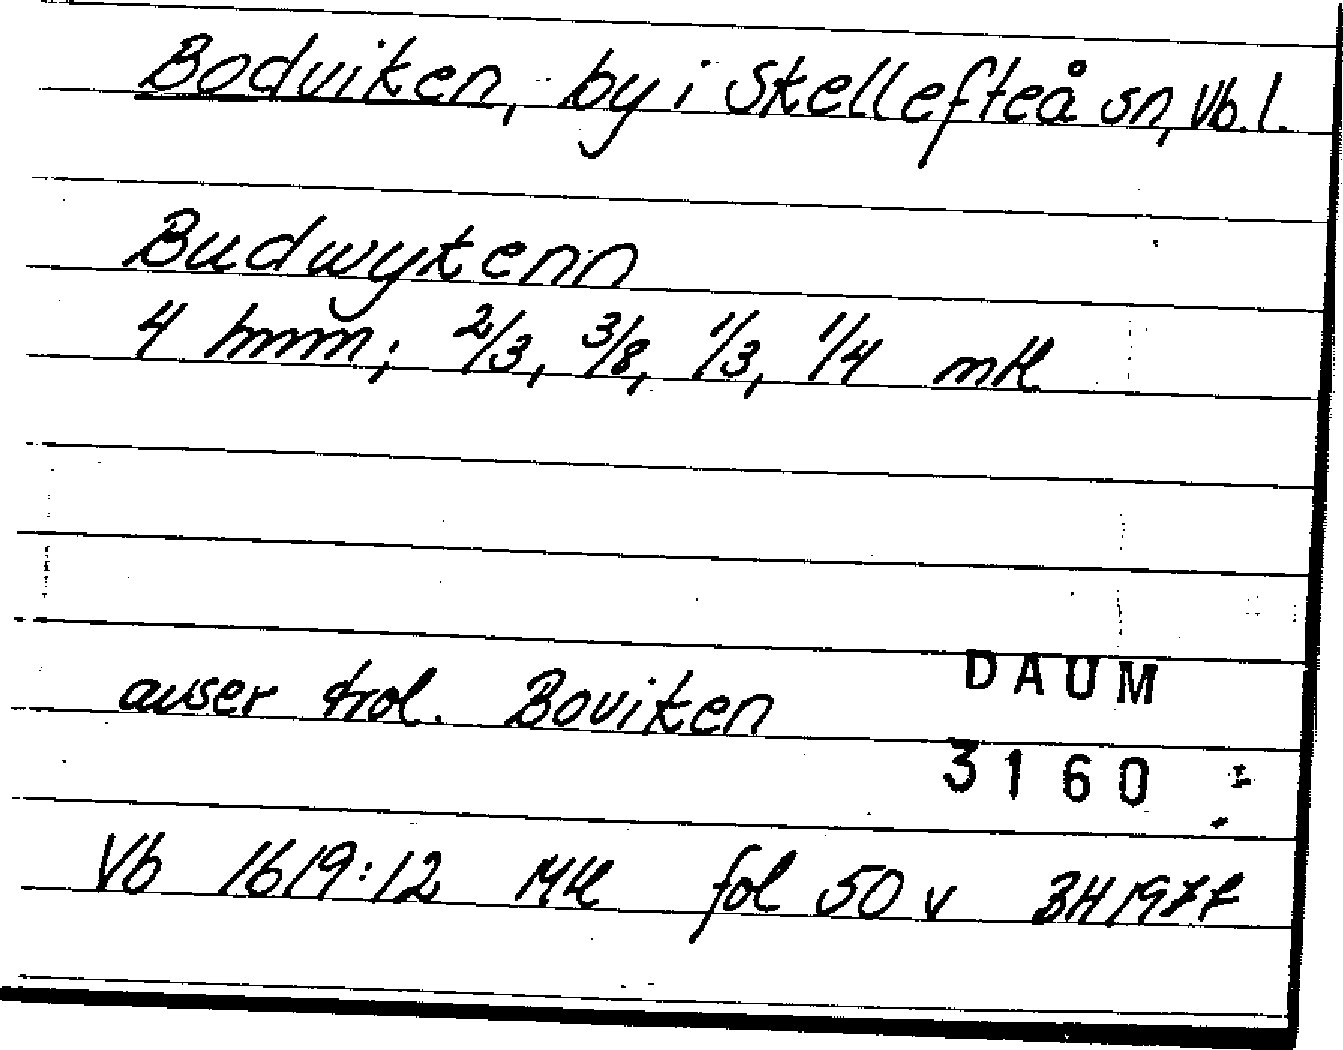 Bodviken, by i Skellefteå sn, Vb. l.
Budwykenn
4 hmm; 2/3, 3/8, 1/3, 1/4 mtl
avser trol. Boviken
DAUM
3160
Vb 1619:12 Mtl fol 50 v BH 1977